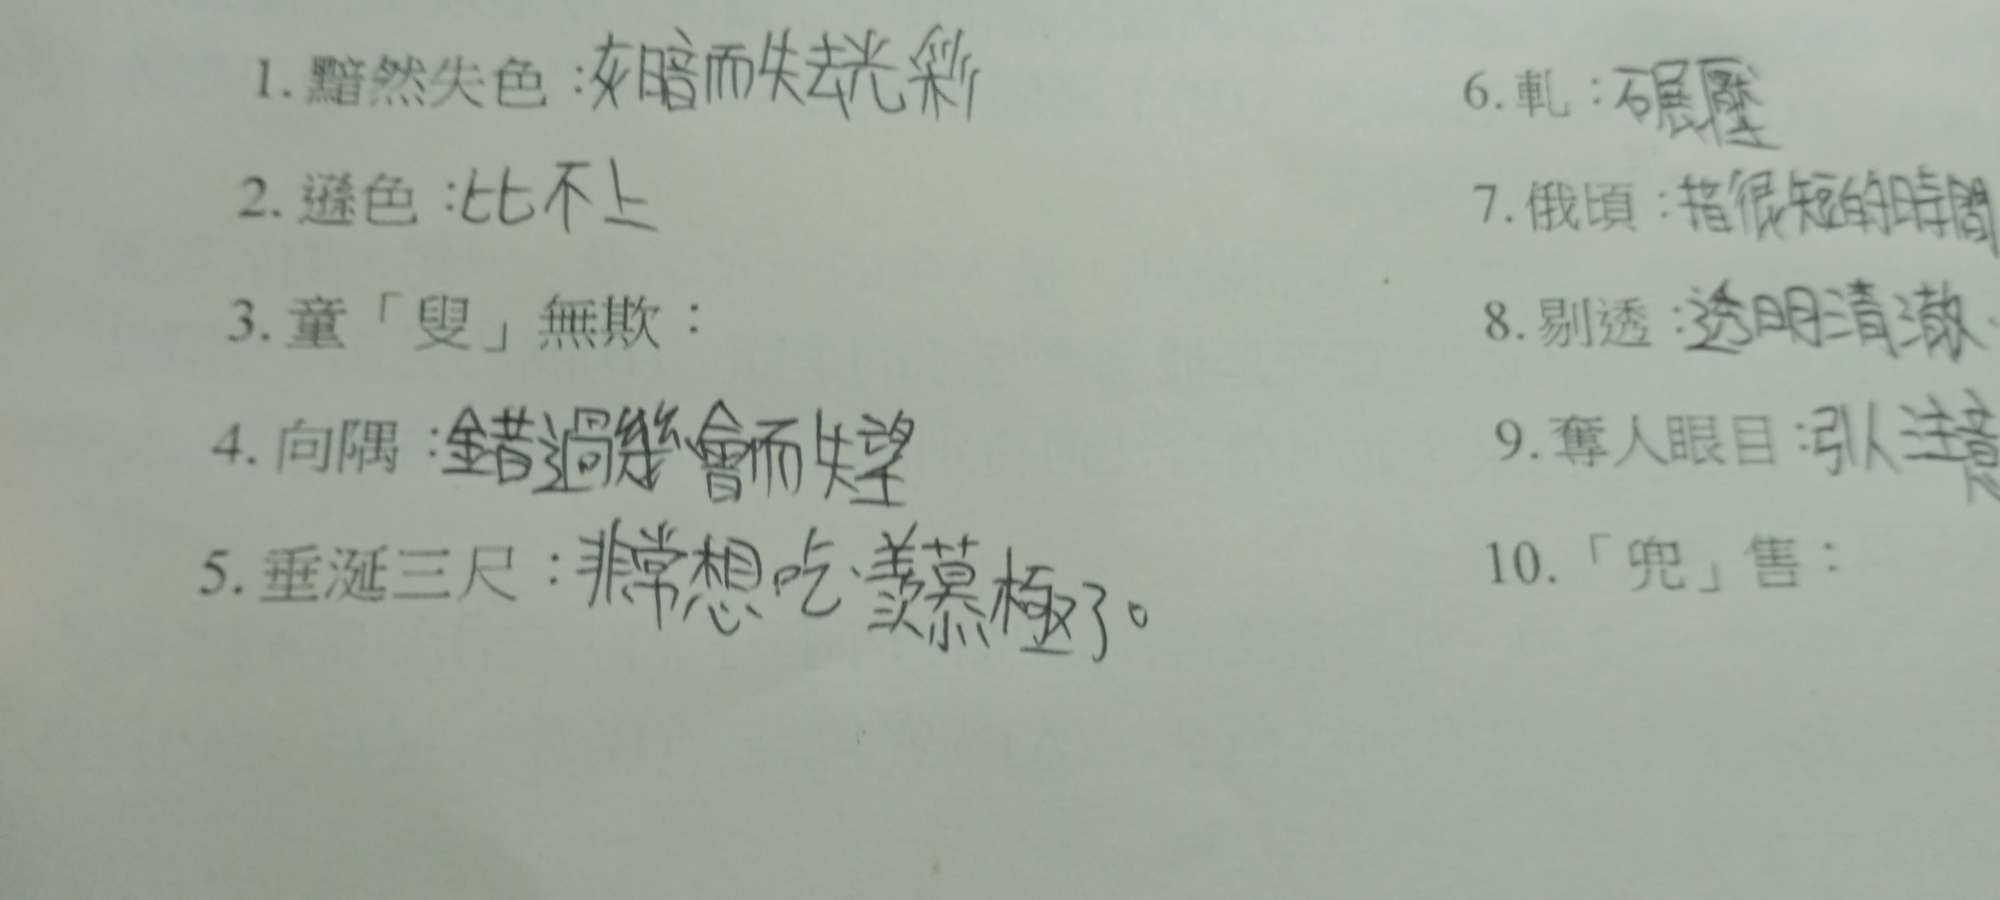 1. 黯然失色：灰暗而失去光彩
2. 遜色：比不上
3. 童「叟」無欺：
4. 向隅：錯過幾會而失望
5. 垂涎三尺：非常想吃.羨慕極了。
6. 軋：碾壓
7. 俄頃：指很短的時間
8. 剔透：透明清澈.
9. 奪人眼目：引人注意
10.「兜」售：